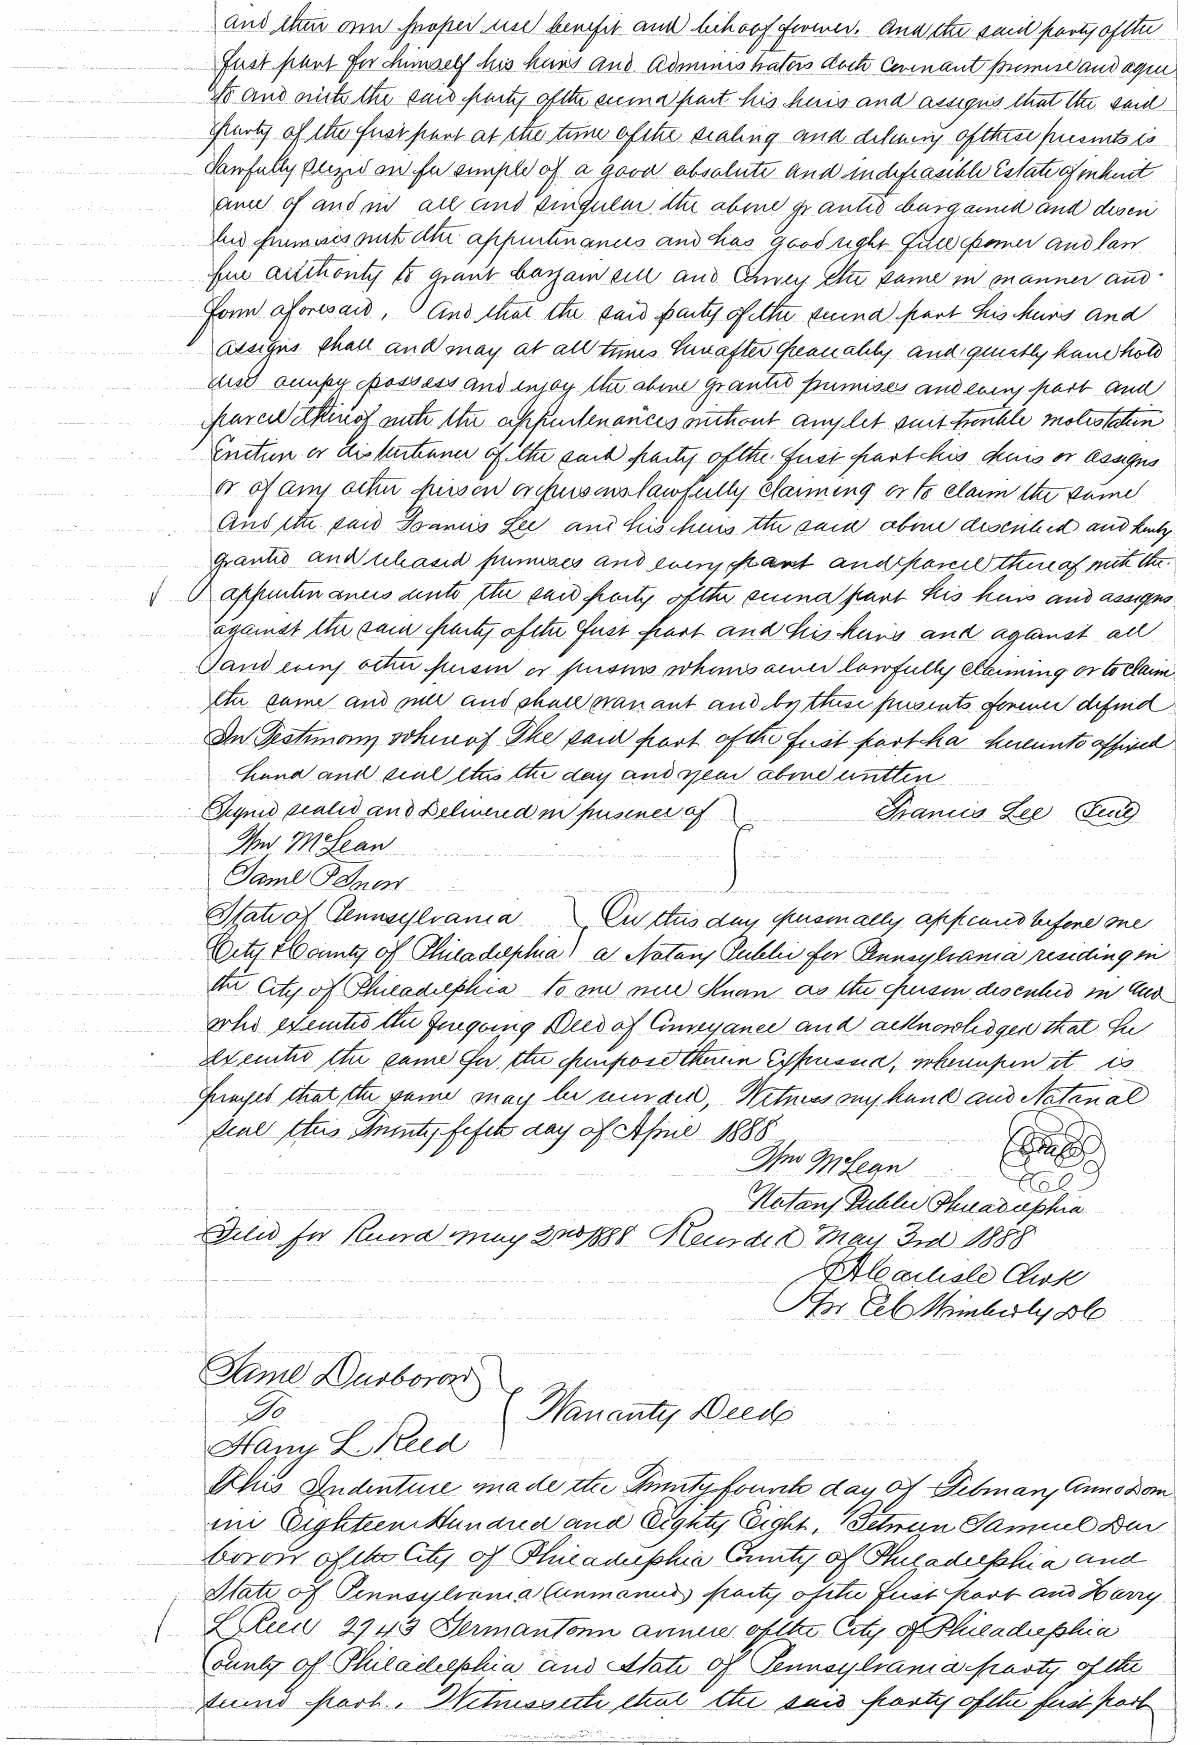 and their own proper use benefit and behoof forever. And the said party of the
first part for himself his heirs and Administrators doth Covenant promise and agree
to and with the said party of the second part his heirs and assigns that the said
party of the first part at the time of the sealing and delivery of these presents is
Lawfully seized in fee simple of a good absolute and indefeasible Estate of inherit
ance of and in all and singular the above granted bargained and descri
bed premises with the appurtinances and has good right full power and law
ful authority to grant bargain sell and Convey the same in manner and
form aforesaid, And that the said party of the second part his heirs and
assigns shall and may at all times hereafter peaceably and quietly have hold
use occupy possess and enjoy the above granted premises and every part and
parcel thereof with the appurtenances without any let suit trouble molestation
Eviction or disturbance of the said party of the first part his heirs or assigns
or of any other person or persons lawfully claiming or to claim the same
And the said Francis Lee and his heirs the said above described and hereby
granted and released premises and every part and parcel thereof with the
appurtinances unto the said party of the second part his heirs and assigns
against the said party of the first part and his heirs and against all
and every other person or persons whomsoever lawfully claiming or to claim
the same and will and shall warrant and by these presents forever defend
In Testimony whereof The said part of the first part ha hereunto affixed
hand and seal this the day and year above written
Signed sealed and Delivered in presence of Francis Lee Seal
Wm McLean
Saml P Snow
State of Pennsylvania On this day personally appeared before me
City & County of Philadelphia a Notary Public for Pennsylvania residing in
the City of Philadelphia to me well Known as the person described in and
who executed the foregoing Deed of Conveyance and acknowledged that he
executed the same for the purpose therein Expressed, whereupon it is
prayed that the same may be recorded, Witness my hand and Notarial
seal this Twenty fifth day of April 1888
Wm McLean
Notary Public Philadelphia
Filed for Record May 2nd 1888 Recorded May 3rd 1888
A Carlisle Clerk
Per Wimberly DC
Saml Durborow
To Warranty Deed
Harry L Reed
This Indenture made the Twenty fourth day of February Anno Dom
ini Eighteen Hundred and Eighty Eight, Between Samuel Dur
borow of the City of Philadelphia County of Philadelphia and
State of Pennsylvania (unmarried) party of the first part and Harry
L Reed 2943 Germantown avenue of the City of Philadelphia
County of Philadelphia and State of Pennsylvania party of the
second part. Witnesseth that the said party of the first part